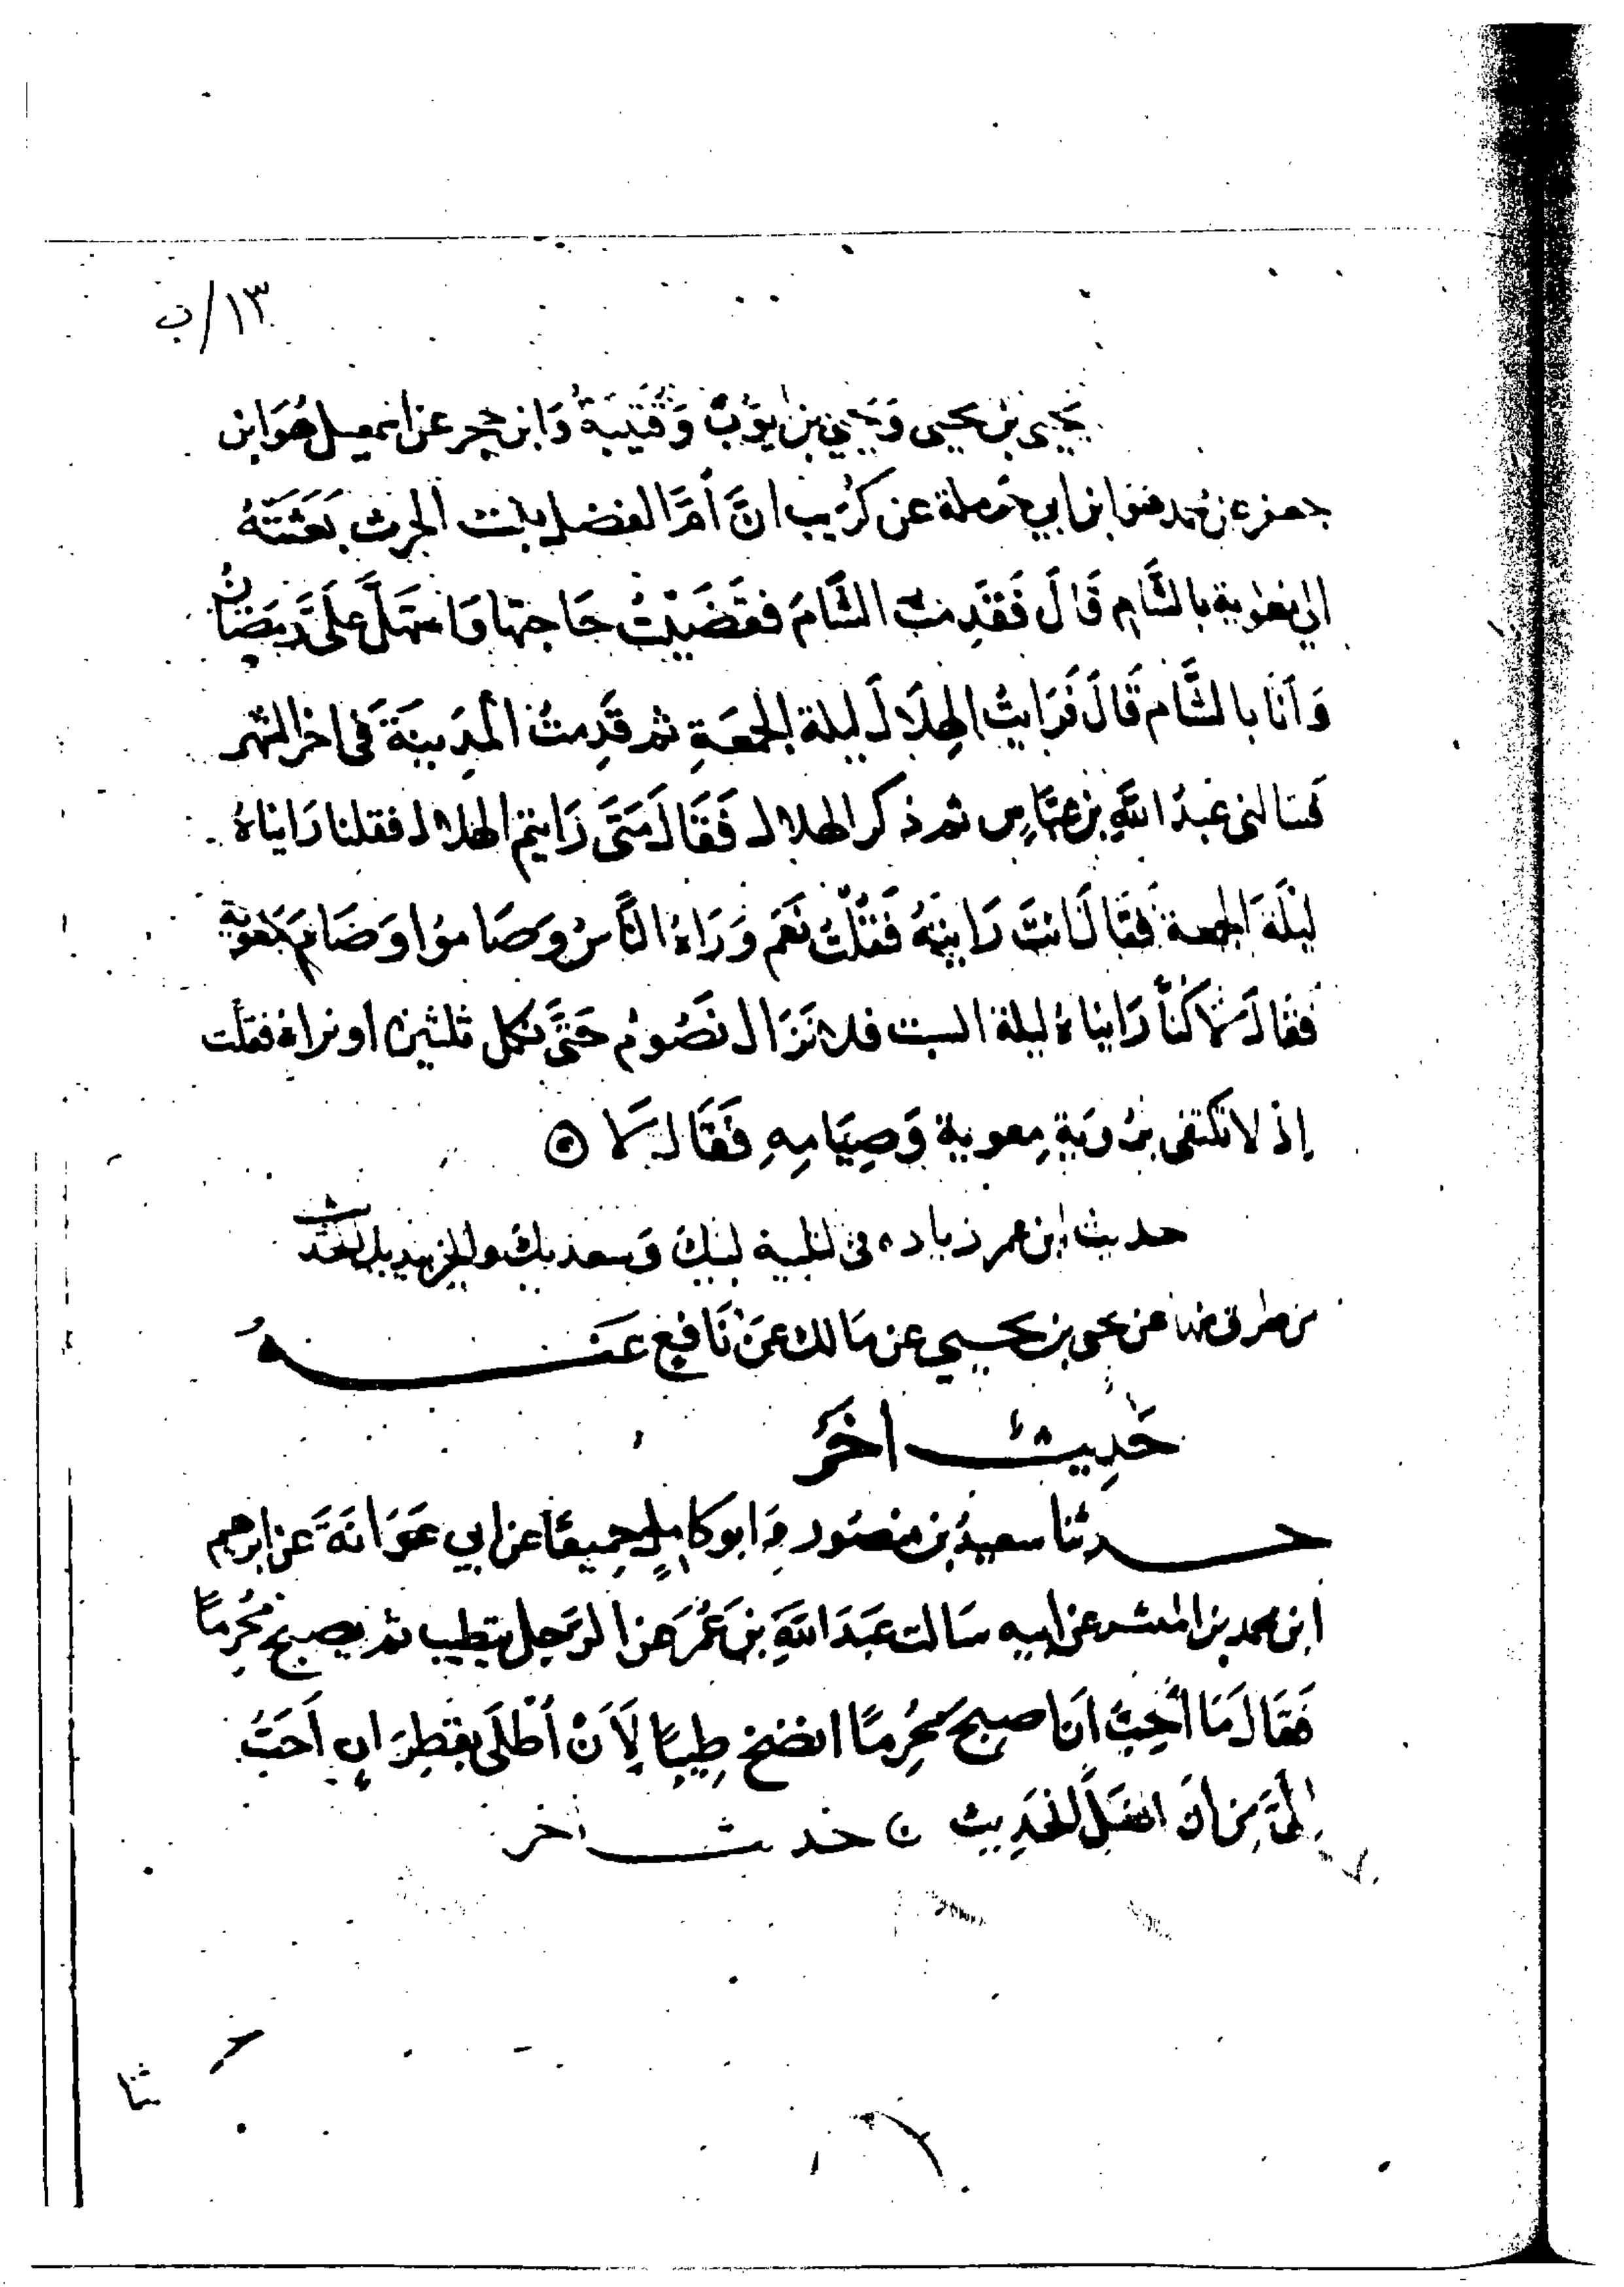 ١٣/ب
يحيى بن يحيى وَيَحيى بن ايوب وَقُتَيبَةُ وَابن حجر عن اسمعيل هُوَ ابن
جعفر عن محمد هو ابن ابي حرملة عن كُرَيب انَّ أمَّ الفضل بنت الحرث بَعَثَتهُ
الى معوية بالشَّام قَالَ فَقَدِمتُ الشَّامَ فقَضَيْتُ حَاجتها وَاستهَلَّ عَلَىَّ رَمَضَانُ
وَأنَا بالشَّام قَالَ فَرَايتُ الهِلَالَ ليلة الجمعَةِ ثم قَدِمتُ المَدِينَةَ فى اخر الشهر
فسالنى عَبدُ اللَّهِ بن عبَّاسٍ ثم ذكر الهلال فَقَالَ مَتَى رَايتم الهلال فقلنا رَايناهُ
لَيْلَةَ الجمعة فَقَالَ انتَ رَايتهُ فَقُلْتُ نَعَم وَرَاهُ النَّاسُ وَصَاموُا وَصَامَ مَعَوية
فقَالَ لاكنَّا رَايناهُ ليلة السبت فلا نَزَال نَصُومُ حَتَّى نكمل ثلثين او نراه فقلت
إذ لا تكتفى بُروَيةِ معوية وَصِيَامِهِ فَقَالَ لَا ۞
حديث ابن عمر زياده فى التلبية لبيك وَسعديك والخير بيديك الحديث
من طرق منها عن يحيى بن يحيى عن مَالك عَن نَافِع عَنــهُ
حَدِيث اخَر
حــدثنا سعيدُ بن منصُور وَابو كامِلٍ جميعًا عن ابي عَوَانَةَ عن ابرهيم
ابن محمد بن المنتشر عن ابيه سَالت عَبدَ اللَّهِ بنَ عُمَرَ عن الرَّجل يتطيب ثم يصبح مُحْرِمًا
فَقَالَ مَا أحِبُّ انَ اصبحَ مُحرِمًا انضخ طِيبًا لِأَنْ أطْلَى بقَطِرَانٍ اَحَبُّ
إلَىَّ مِن أنْ افعَلَ الحَدِيث ۞ حديث اخر
ثنا